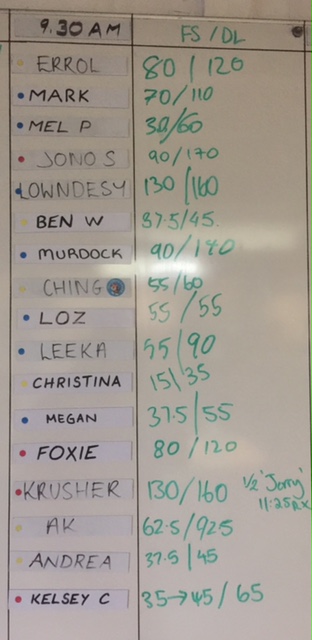 9.30 AM FS/DL
ERROL 80 / 120
MARK 70/110
MEL P 38/60
JONO S 90/170
LOWNDESY 130/160
BEN W 37.5/45.
MURDOCK 90/140
CHING 55/60
LOZ 55/55
LEEKA 55/90
CHRISTINA 15\35
MEGAN 37.5/55
FOXIE 80/120
KRUSHER 130/160 1/2 'Jerry'
11:25 RX
AK 62.5/925
ANDREA 37.5/45
KELSEY C 35→45/65